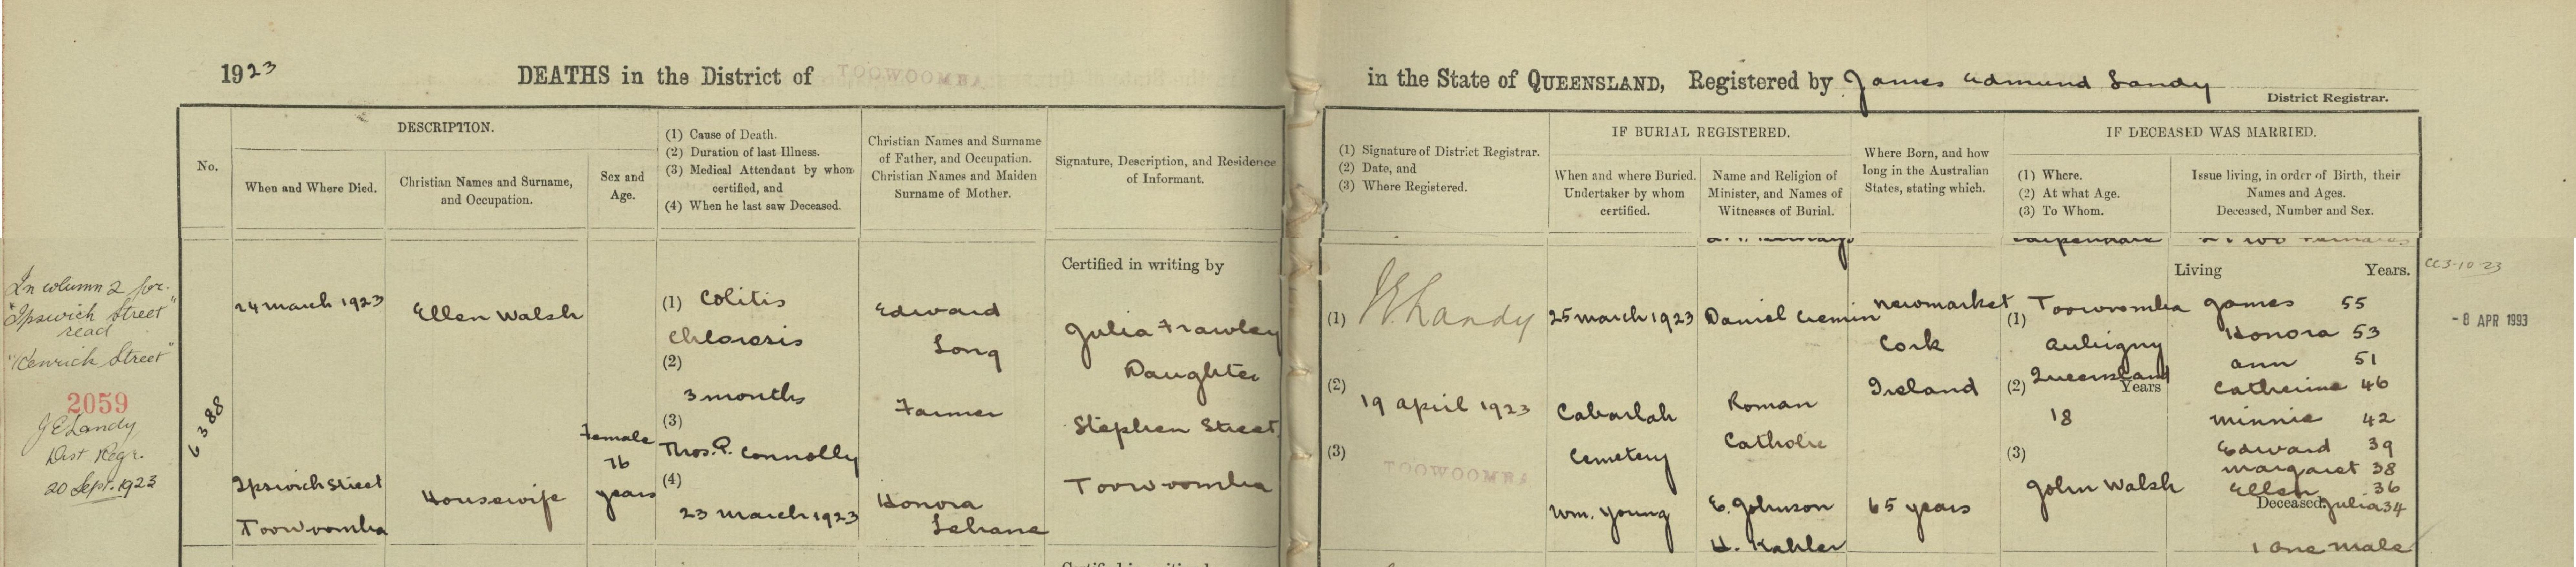 1923
DEATHS in the District of TOOWOOMBA
in the State of QUEENSLAND, Registered by James Edmund Landy
District Registrar.
No.
DESCRIPTION.
When and Where Died.
Christian Names and Surname,
and Occupation.
Sex and
Age.
(1) Cause of Death.
(2) Duration of last Illness.
(3) Medical Attendant by whom
certified, and
(4) When he last saw Deceased.
Christian Names and Surname
of Father, and Occupation.
Christian Names and Maiden
Surname of Mother.
Signature, Description, and Residence
of Informant.
(1) Signature of District Registrar.
(2) Date, and
(3) Where Registered.
IF BURIAL REGISTERED.
When and where Buried.
Undertaker by whom
certified.
Name and Religion of
Minister, and Names of
Witnesses of Burial.
Where Born, and how
long in the Australian
States, stating which.
IF DECEASED WAS MARRIED.
(1) Where.
(2) At what Age.
(3) To Whom.
Issue living, in order of Birth, their
Names and Ages.
Deceased, Number and Sex.
In column 2 for
"Ipswich Street"
read
"Kenrick Street"
2059
J E Landy
Dist Regr.
20 Sept. 1923
6388
24 March 1923
Ipswich Street
Toowoomba
Ellen Walsh
Housewife
Female
76
years
(1) Colitis
Chlorosis
(2)
3 months
(3)
Thos. P. Connolly
(4)
23 March 1923
Edward
Long
Farmer
Honora
Lehane
Certified in writing by
Julia Frawley
Daughter
Stephen Street,
Toowoomba
(1) J E Landy
(2)
19 April 1923
(3)
TOOWOOMBA
25 March 1923
Cabarlah
Cemetery
Wm. Young
Daniel Cremin
Roman
Catholic
E. Johnson
H. Kahler
Newmarket
Cork
Ireland
65 years
(1) Toowoomba
Aubigny
Queensland
(2) Years
18
(3)
John Walsh
Living Years.
James 55
Honora 53
Ann 51
Catherine 46
Minnie 42
Edward 39
Margaret 38
Ellen 36
Deceased. Julia 34
1 one male
CC3-10-23
- 8 APR 1993